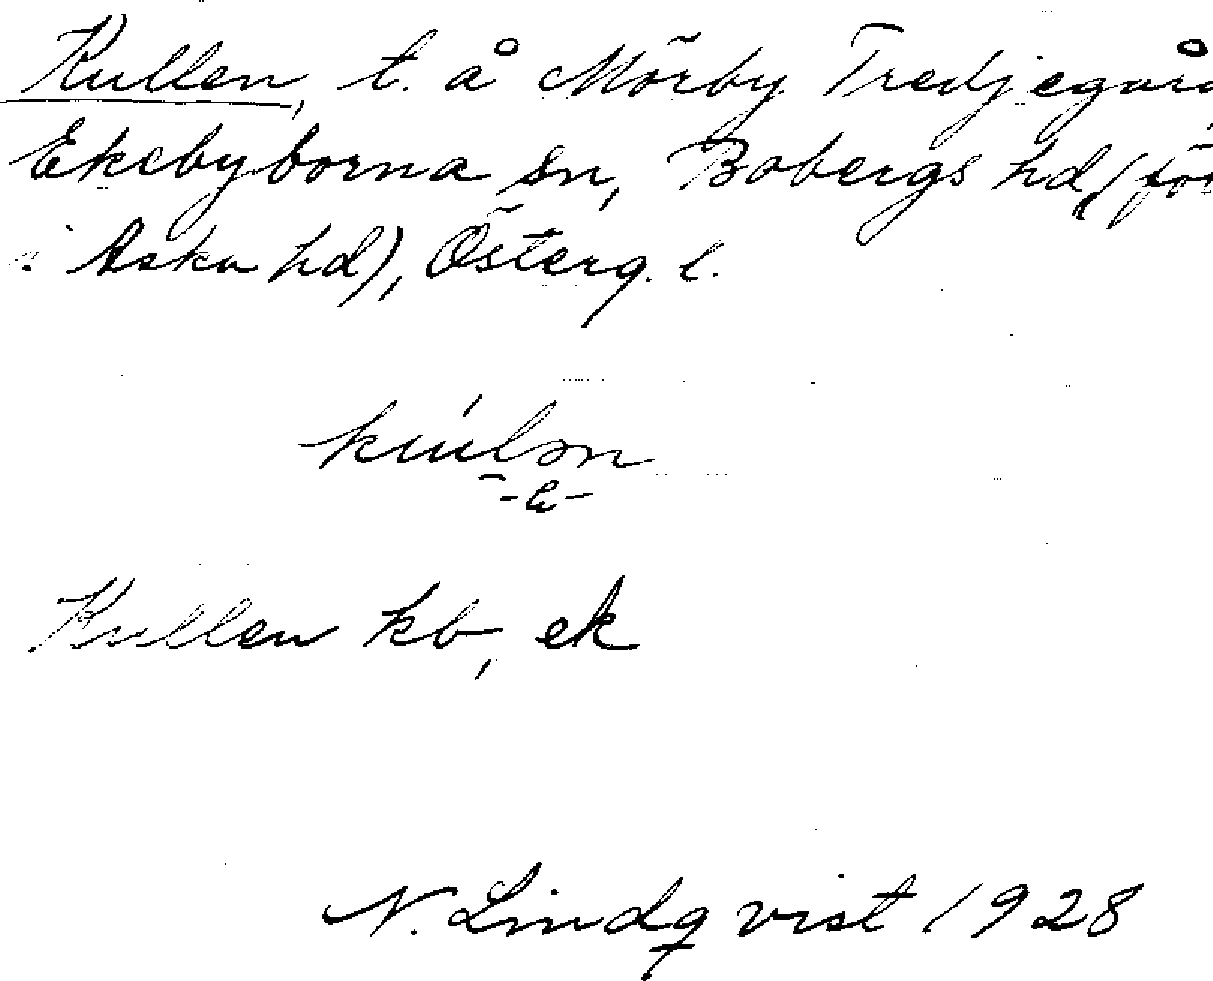 Kullen, t. å Mörby Tredjegård
Ekebyborna sn, Bobergs hd (för
i Aska hd), Österg. l.
kúlən
-e-
Kullen kb, ek
N. Lindqvist 1928